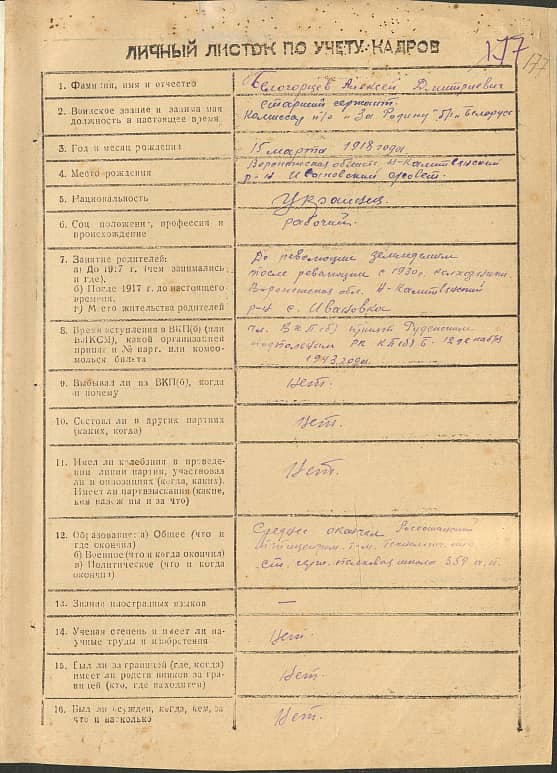 177
177
ЛИЧНЫЙ ЛИСТОК ПО УЧЕТУ КАДРОВ
1. Фамилия, имя и отчество
Белогорцев Алексей Дмитриевич
2. Воинское звание и занимаемая
должность в настоящее время
старший сержант.
Комиссар п/о "За Родину" бр-и Белорусс
3. Год и месяц рождения
15 марта 1918 года
4. Место рождения
Воронежская область Н-Калитвянский
р-н Ивановский совет.
5. Национальность
Украинец
6. Соц положение, профессия и
происхождение
рабочий.
7. Занятие родителей:
а) До 1917 г. (чем занимались
и где).
б) После 1917 г. до настоящего
времени.
г) Место жительства родителей
До революции земледелием
после революции с 1930г. колхозники.
Воронежская обл. Н-Калитвянский
р-н с. Ивановка
8. Время вступления в ВКП(б) (или
ВЛКСМ), какой организацией
принят и № парт. или комсо-
мольск билета
чл. ВКП(б) принят Руденским
подпольным РК КП(б) Б. 12 декабря
1943 года.
9. Выбывал ли из ВКП(б), когда
и почему
Нет.
10. Состоял ли в других партиях
(каких, когда)
Нет.
11. Имел ли колебания в проведе-
нии линии партии, участвовал
ли в оппозициях (когда, каких).
Имеет ли партвзыскания (какие,
кем наложены и за что)
Нет.
12. Образование: а) Общее (что и
где окончил)
б) Военное (что и когда окончил)
в) Политическое (что и когда
окончил)
Среднее окончил Россошанский
ст. серж. полковая школа 359 с.п.
13. Знание иностранных языков
—
14. Ученая степень и имеет ли на-
учные труды и изобретения
Нет.
15. Был ли за границей (где, когда)
имеет ли родственников за гра-
ницей (кто, где находится)
Нет.
16. Был ли осужден, когда, кем, за
что и насколько
Нет.